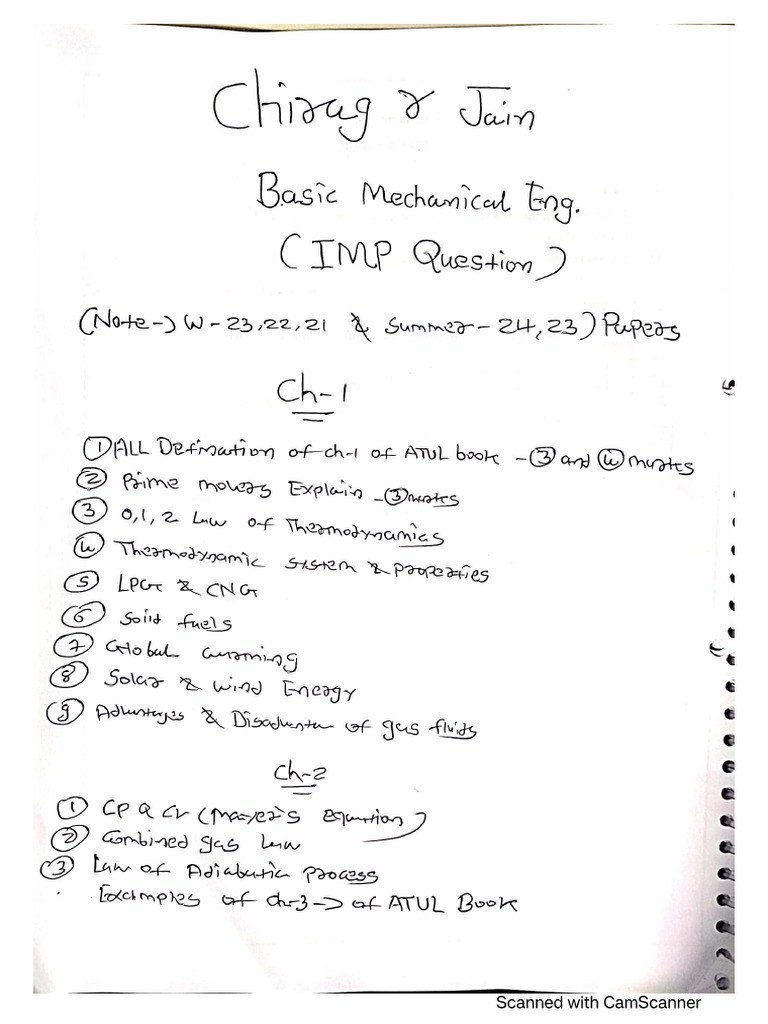 Chirag r Jain
Basic Mechanical Eng.
(IMP Question)
(Note→) W - 23,22,21 & Summer - 24,23) Papers
Ch-1
① ALL Defination of ch-1 of ATUL book - ③ and ④ marks
② Prime movers Explain - ③ marks
③ 0,1,2 Law of Thermodynamics
④ Thermodynamic system & Properties
⑤ LPG & CNG
⑥ Solid fuels
⑦ Global warming
⑧ Solar & wind Energy
⑨ Advantages & Disadvantan of gas fluids
Ch-2
① CP & CV (Mayer's equation)
② Combined gas law
③ Law of Adiabatic Process
Examples of ch-3 → of ATUL Book
Scanned with CamScanner